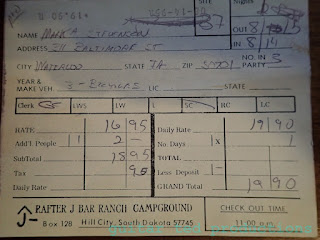 SITE 37
OUT 8/15
IN 8/14
NAME MARK A STEVENSON
ADDRESS 211 BALTIMORE ST
CITY WATERLOO STATE IA ZIP 50701 NO. IN PARTY 3
YEAR & MAKE VEH LIC STATE
Clerk LWS LW S SC RC LC
RATE 16 95 Daily Rate 19 90
Add'l People 11 2 - No Days 1 x 1
SubTotal 18 95 TOTAL
Tax 95 Less Deposit 1-
Daily Rate GRAND Total 19 90
J- RAFTER J BAR RANCH CAMPGROUND
Box 128 Hill City, South Dakota 57745
CHECK OUT TIME
11:00 A.M.